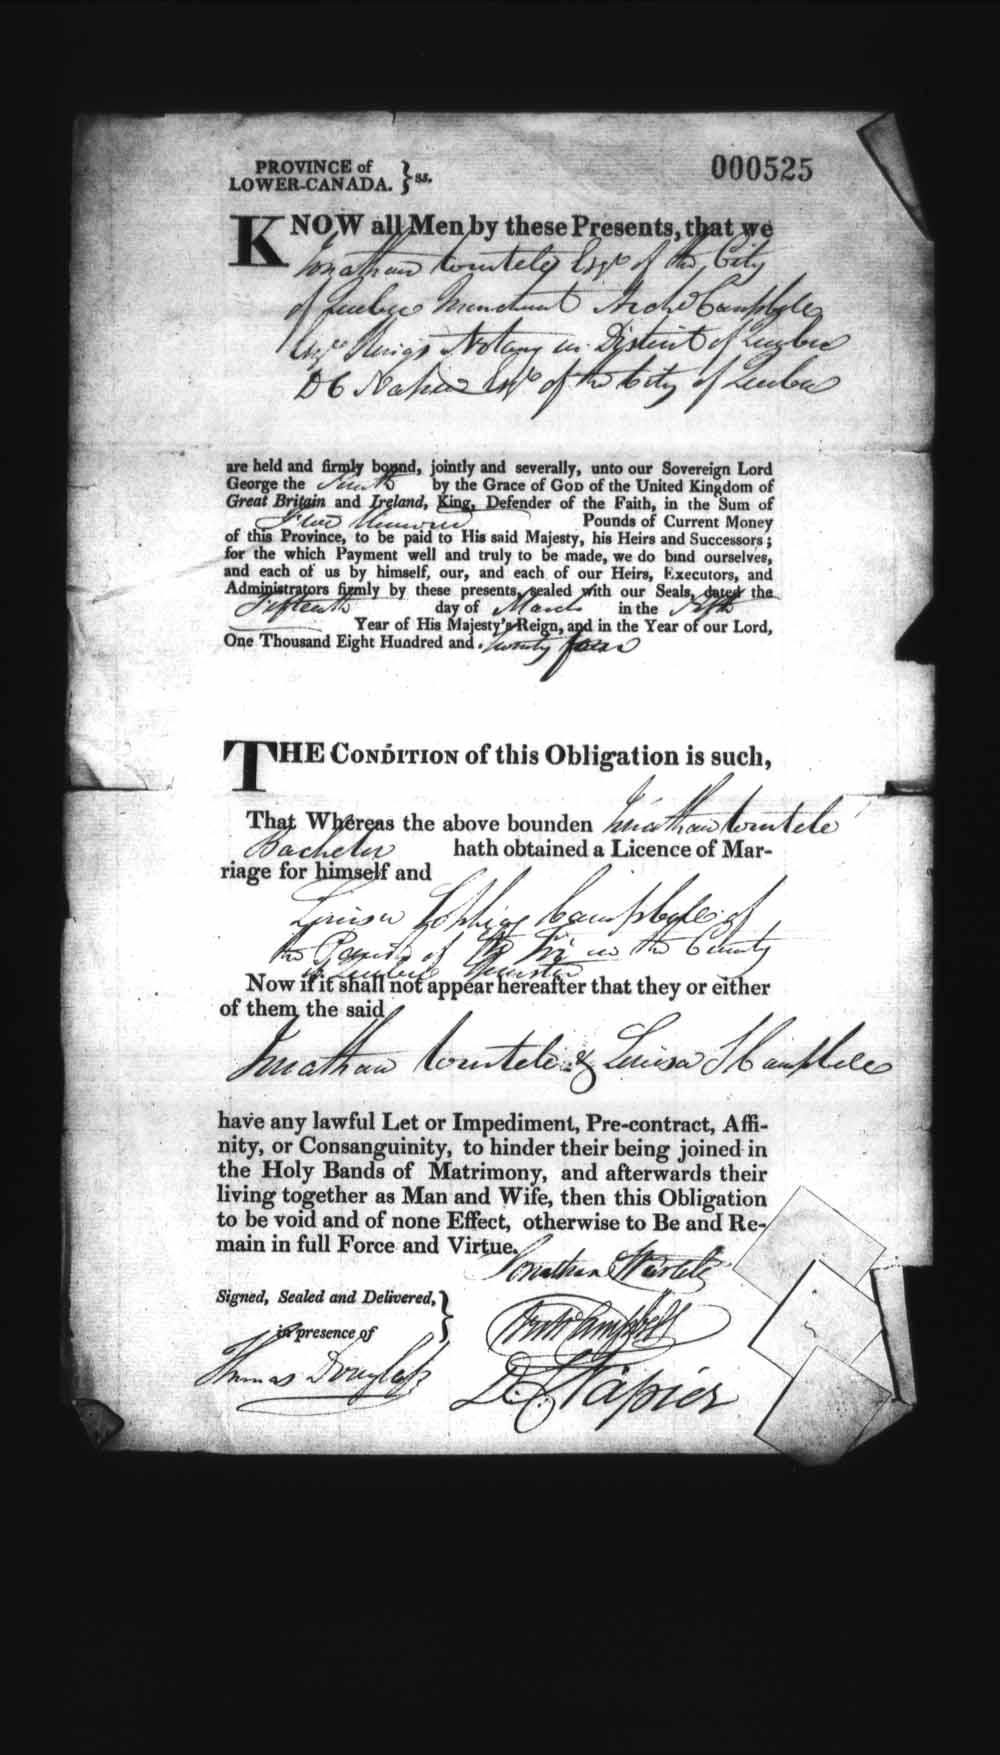 PROVINCE of
LOWER-CANADA. } ss.
000525
KNOW all Men by these Presents, that we
Jonathan Wurtele Esqr of the City
of Quebec Merchant Archd Campbell
Esqr King's Notary in District of Quebec
D C Napier Esqr of the City of Quebec
are held and firmly bound, jointly and severally, unto our Sovereign Lord
George the Fourth by the Grace of GOD of the United Kingdom of
Great Britain and Ireland, King, Defender of the Faith, in the Sum of
Five Hundred Pounds of Current Money
of this Province, to be paid to His said Majesty, his Heirs and Successors;
for the which Payment well and truly to be made, we do bind ourselves,
and each of us by himself, our, and each of our Heirs, Executors, and
Administrators firmly by these presents, sealed with our Seals, dated the
Fifteenth day of March in the Fifth
Year of His Majesty's Reign, and in the Year of our Lord,
One Thousand Eight Hundred and Twenty four
THE CONDITION of this Obligation is such,
That Whereas the above bounden Jonathan Wurtele
Bachelor hath obtained a Licence of Mar-
riage for himself and
Louisa Sophia Campbell of
the Parish of in the County
of Quebec Spinster
Now if it shall not appear hereafter that they or either
of them the said
Jonathan Wurtele & Louisa S Campbell
have any lawful Let or Impediment, Pre-contract, Affi-
nity, or Consanguinity, to hinder their being joined in
the Holy Bands of Matrimony, and afterwards their
living together as Man and Wife, then this Obligation
to be void and of none Effect, otherwise to Be and Re-
main in full Force and Virtue.
Jonathan Wurtele
Signed, Sealed and Delivered, }
in presence of
Archd Campbell
Thomas Douglass
D. C. Napier